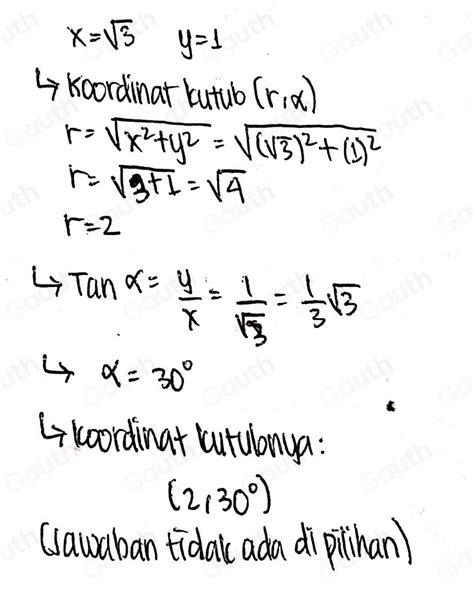 x=√3 y=1
↳ Koordinat kutub (r,α)
r=√x²+y² = √(√3)²+(1)²
r=√3+1 = √4
r=2
↳ Tan α= y/x = 1/√3 = 1/3 √3
↳ α= 30°
↳ koordinat kutubnya:
(2,30°)
(Jawaban tidak ada di pilihan)